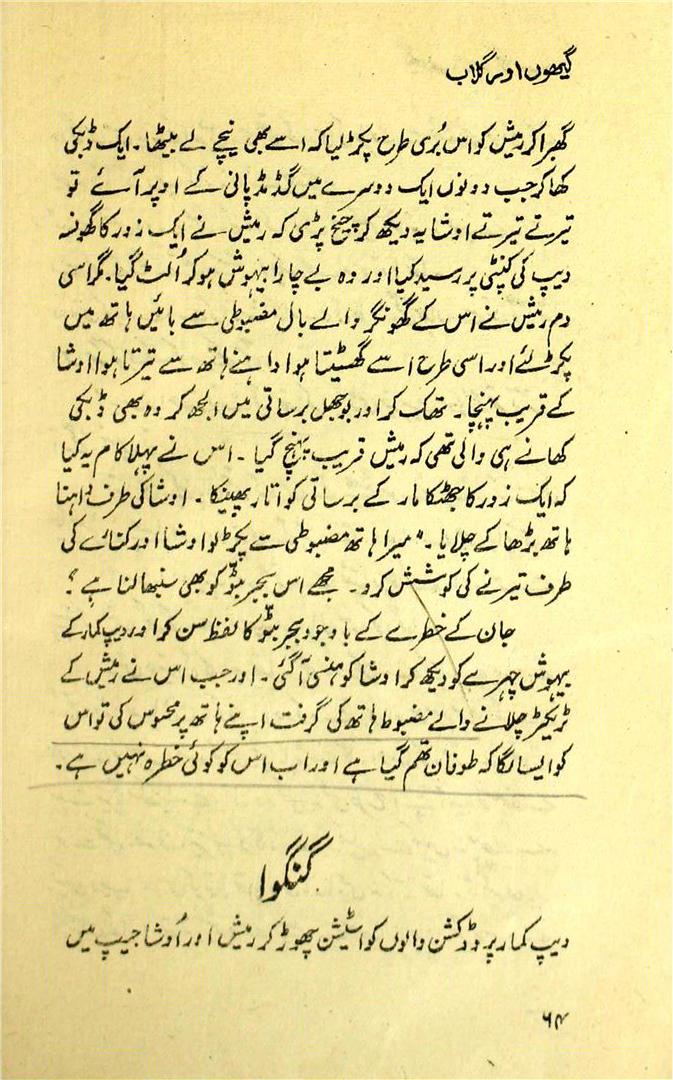 گیھوں اور گلاب
گھبرا کر رمیش کو اس بُری طرح پکڑ لیا کہ اسے بھی نیچے لے بیٹھا۔ ایک ڈبکی
کھا کر جب دونوں ایک دوسرے میں گڈ مڈ پانی کے اوپر آئے تو
تیرتے تیرتے اوشا یہ دیکھ کر چیخ پڑی کہ رمیش نے ایک زور کا گھونسہ
دیپ کی کنپٹی پر رسید کیا اور وہ بے چارا بیہوش ہو کر اُلٹ گیا۔ مگر اسی
دم رمیش نے اس کے گھونگر والے بال مضبوطی سے بائیں ہاتھ میں
پکڑ لئے اور اسی طرح اسے گھسیٹتا ہوا داہنے ہاتھ سے تیرتا ہوا اوشا
کے قریب پہنچا۔ تھک کر اور بوجھل برساتی میں الجھ کر وہ بھی ڈبکی
کھانے ہی والی تھی کہ رمیش قریب پہنچ گیا۔ اس نے پہلا کام یہ کیا
کہ ایک زور کا جھٹکا مار کے برساتی کو اتار پھینکا۔ اوشا کی طرف داہنا
ہاتھ بڑھا کے چلایا۔ "میرا ہاتھ مضبوطی سے پکڑ لو اوشا اور کنارے کی
طرف تیرنے کی کوشش کرو۔ مجھے اس بجر بٹو کو بھی سنبھالنا ہے"
جان کے خطرے کے باوجود بجر بٹو کا لفظ سن کر اور دیپ کمار کے
بیہوش چہرے کو دیکھ کر اوشا کو ہنسی آگئی۔ اور جب اس نے رمیش کے
ٹریکٹر چلانے والے مضبوط ہاتھ کی گرفت اپنے ہاتھ پر محسوس کی تو اس
کو ایسا لگا کہ طوفان تھم گیا ہے اور اب اس کو کوئی خطرہ نہیں ہے۔
گنگوا
دیپ کمار پروڈکشن والوں کو اسٹیشن چھوڑ کر رمیش اور اُوشا جیپ میں
۶۴